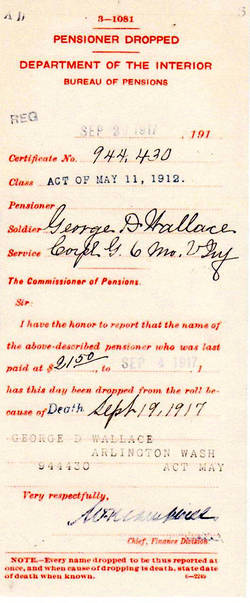 3—1081
PENSIONER DROPPED
DEPARTMENT OF THE INTERIOR
BUREAU OF PENSIONS
REG
SEP 2 1917 , 191
Certificate No. 944,430
Class ACT OF MAY 11, 1912.
Pensioner
Soldier George D Wallace
Service Corpl G. 6 Mo. V Inf
The Commissioner of Pensions.
Sir:
I have the honor to report that the name of
the above-described pensioner who was last
paid at $21.50, to SEP 4 1917, 1
has this day been dropped from the roll be-
cause of Death Sept 19, 1917
GEORGE D WALLACE
ARLINGTON WASH
944430 ACT MAY
Very respectfully,
Chief, Finance Division.
NOTE.—Every name dropped to be thus reported
at once, and when cause of dropping is death, state date
of death when known.